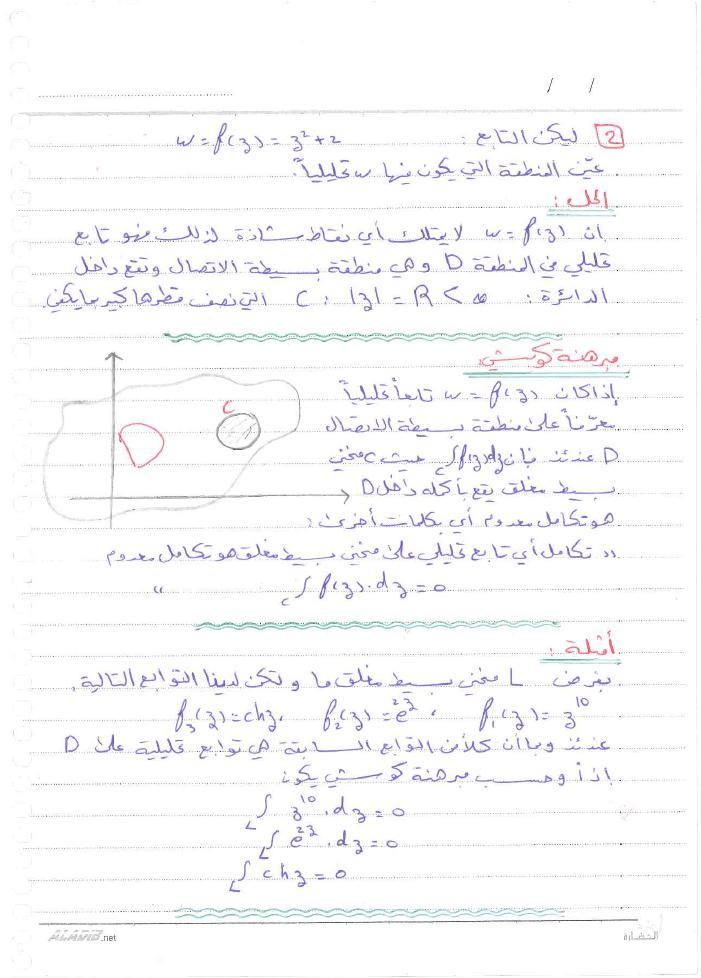 / /
2 ليكن التابع : w = f(z) = z² + 2
عيّن المنطقة التي يكون فيها w تحليلياً.
الحل :
ان w = f(z) لا يمتلك أي نقاط شاذة لذلك فهو تابع
تحليلي في المنطقة D وهي منطقة بسيطة الاتصال وتقع داخل
الدائرة : C : |z| = R < ∞ التي نصف قطرها كبير بما يكفي.
مبرهنة كوشي:
إذا كان w = f(z) تابعاً تحليلياً
معرّفاً على منطقة بسيطة الاتصال
D عندئذ فإن ∫c f(z)dz حيث c منحني
بسيط مغلق يقع بأكمله داخل D
هو تكامل معدوم أي بكلمات أخرى :
" تكامل أي تابع تحليلي على منحني بسيط مغلق هو تكامل معدوم
∫c f(z).dz = 0 "
C
D
أمثلة :
بفرض L منحني بسيط مغلق ما و لتكن لدينا التوابع التالية.
f₁(z) = z¹⁰ , f₂(z) = e²ᶻ , f₃(z) = chz
عندئذ وبما أن كلاً من التوابع السابقة هي توابع تحليلية على D
إذاً وحسب مبرهنة كوشي يكون
∫L z¹⁰ . dz = 0
∫L e²ᶻ . dz = 0
∫L chz = 0
ALADIB.net
الحضارة